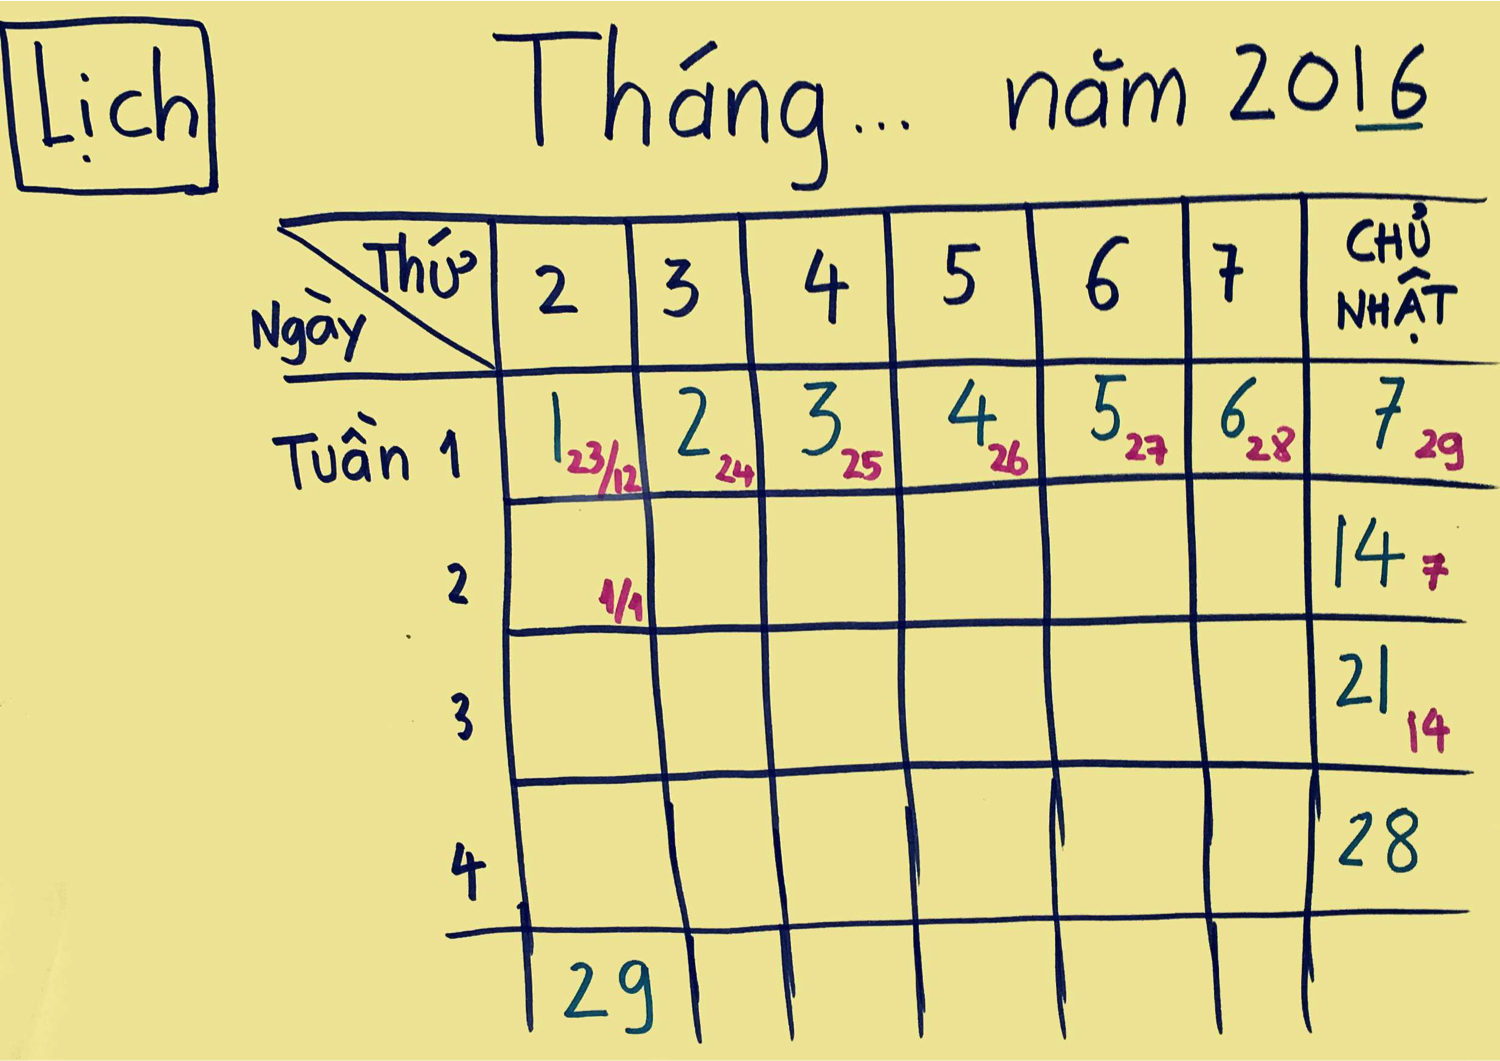 Lịch
Tháng... năm 2016
Thứ 2 3 4 5 6 7 CHỦ NHẬT
Ngày
Tuần 1 1 23/12 2 24 3 25 4 26 5 27 6 28 7 29
2 1/1 14 7
3 21 14
4 28
29